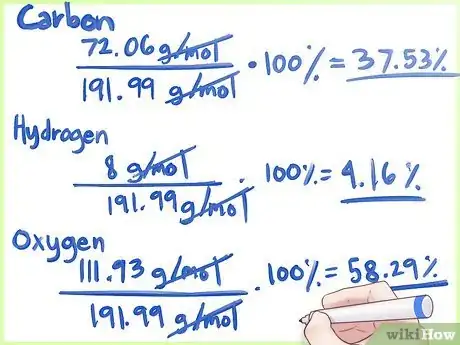 Carbon
72.06 g/mol
191.99 g/mol
· 100% = 37.53%
Hydrogen
8 g/mol
191.99 g/mol
· 100% = 4.16%
Oxygen
111.93 g/mol
191.99 g/mol
· 100% = 58.29%
wikiHow